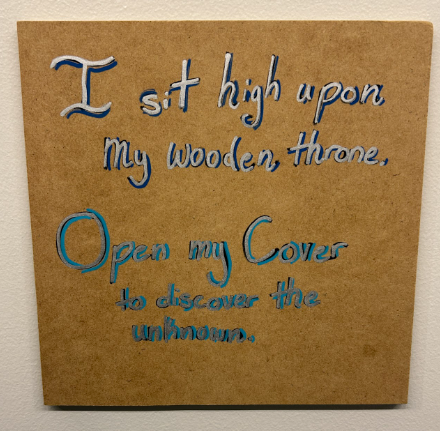 I sit high upon
My wooden, throne.
Open my Cover
to discover the
unknown.